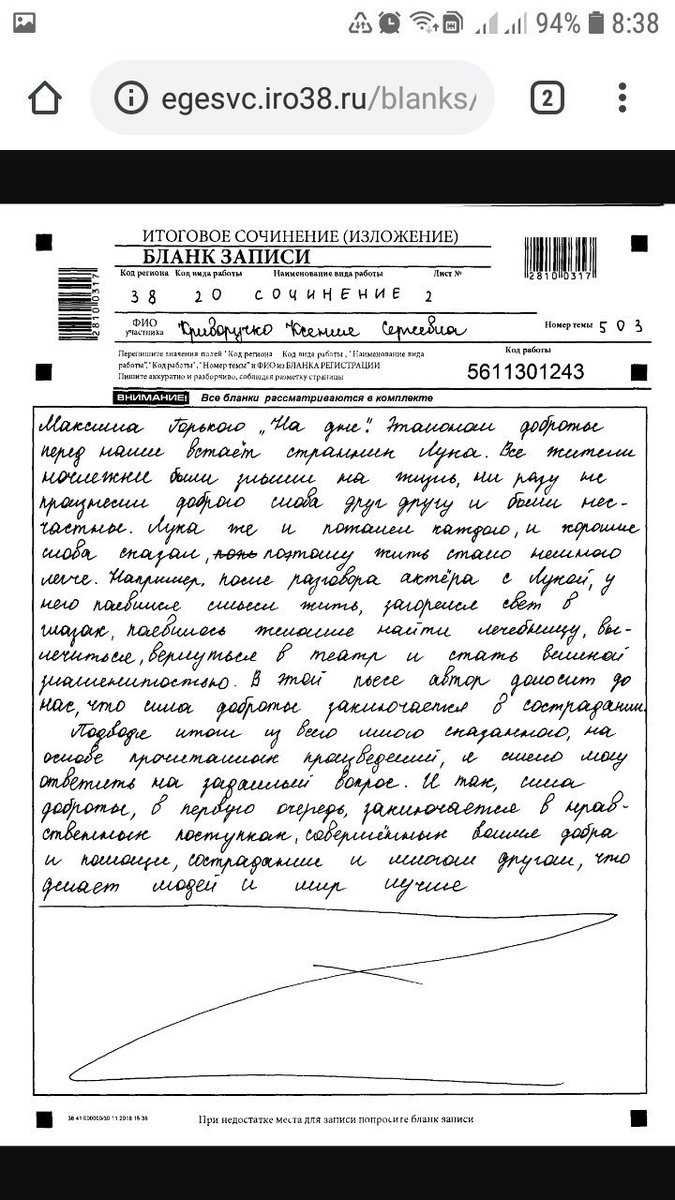 94% 8:38
egesvc.iro38.ru/blanks/
2
ИТОГОВОЕ СОЧИНЕНИЕ (ИЗЛОЖЕНИЕ)
БЛАНК ЗАПИСИ
2810 0317
2810 0317
Код региона Код вида работы Наименование вида работы Лист №
38 20 СОЧИНЕНИЕ 2
ФИО участника Криворучко Ксения Сергеевна Номер темы 503
Перепишите значения полей "Код региона Код вида работы", "Наименование вида
работы", "Код работы", "Номер темы" и ФИО из БЛАНКА РЕГИСТРАЦИИ
Пишите аккуратно и разборчиво, соблюдая разметку страницы
Код работы
5611301243
ВНИМАНИЕ! Все бланки рассматриваются в комплекте
Максима Горького „На дне". Эталоном доброты
перед нами встаёт странник Лука. Все жители
ночлежки были злыми на жизнь, ни разу не
произнесли доброго слова друг другу и были нес-
частны. Лука же и пожалел каждого, и хорошие
слова сказал, поэтому жить стало немного
легче. Например, после разговора актёра с Лукой, у
него появился смысл жить, загорелся свет в
глазах, появилось желание найти лечебницу, вы-
лечиться, вернуться в театр и стать великой
знаменитостью. В этой пьесе автор доносит до
нас, что сила доброты заключается в сострадании.
Подводя итоги из всего мною сказанного, на
основе прочитанных произведений, я смело могу
ответить на заданный вопрос. И так, сила
доброты, в первую очередь, заключается в нрав-
ственных поступках, совершённых во имя добра
и помощи, сострадании и многом другом, что
делает людей и мир лучше
При недостатке места для записи попросите бланк записи